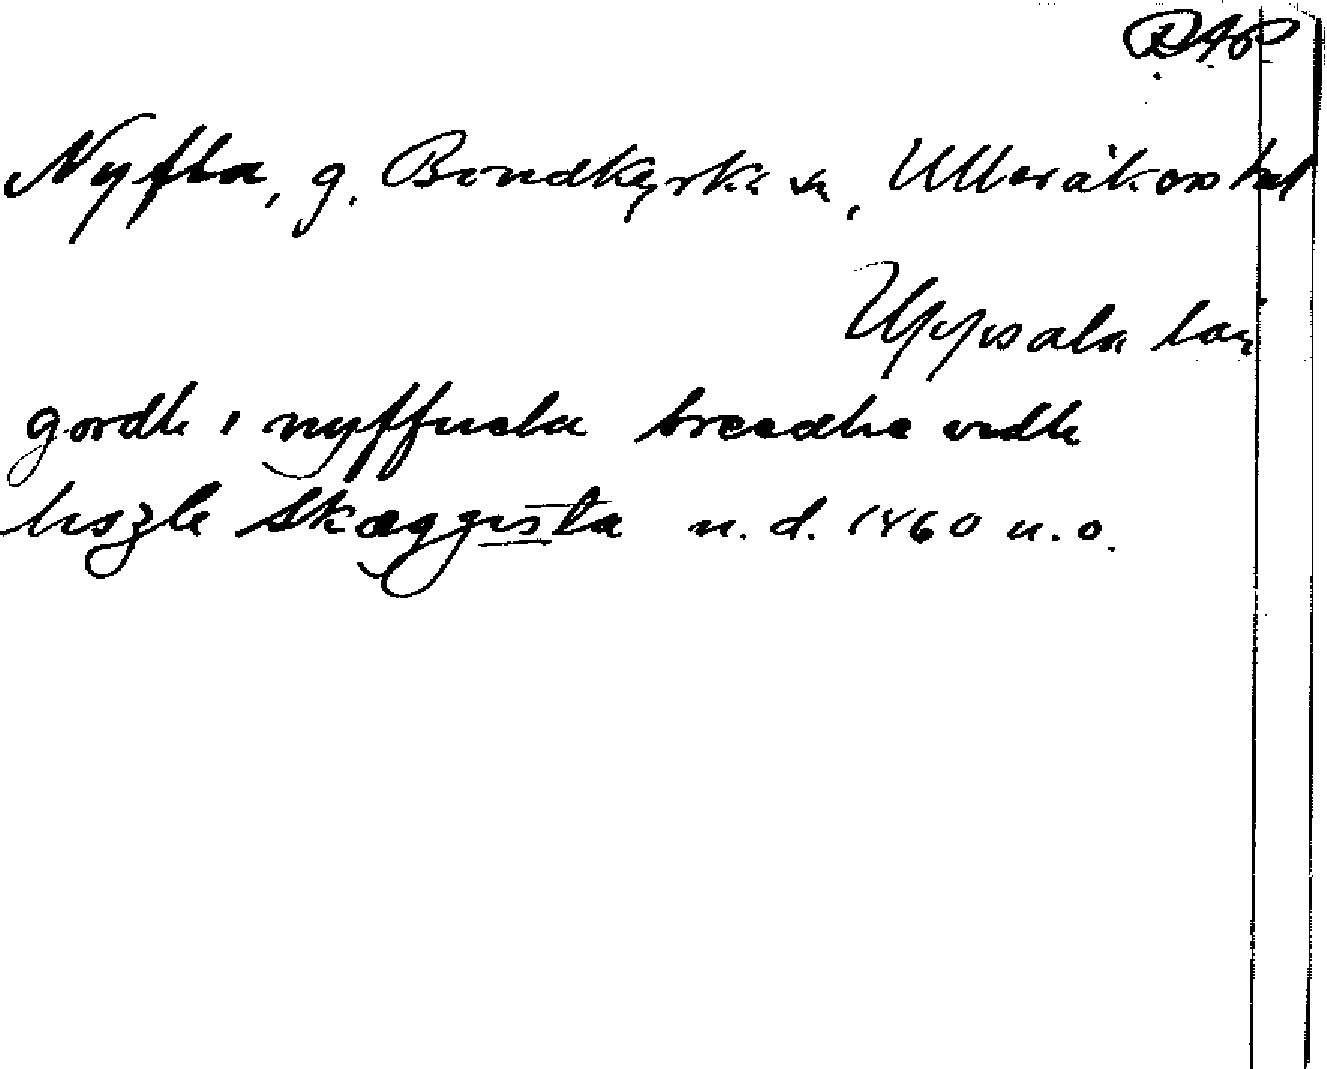 DAP
Nyfla, g. Bondkyrka sn, Ulleråkers hd
Uppsala län
gordh i nyffuela breedhe vedh
Skæggista u. d. 1460 u. o.